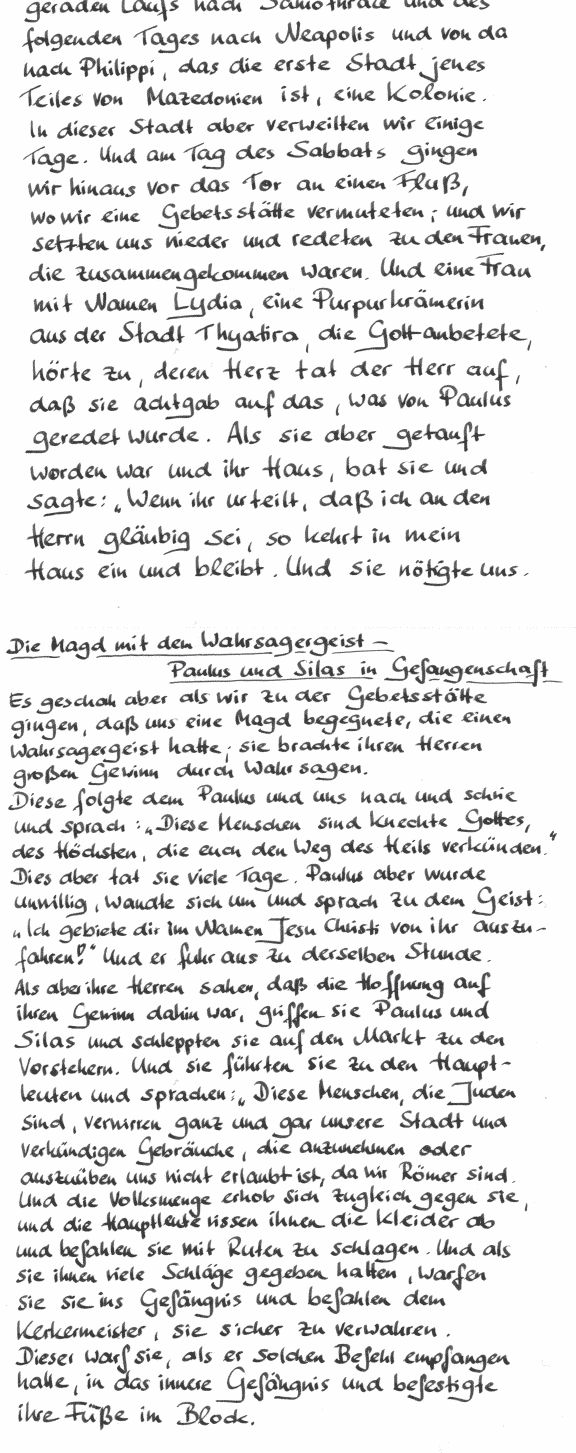 geraden Laufs nach Samothrake und des
folgenden Tages nach Neapolis und von da
nach Philippi, das die erste Stadt jenes
Teiles von Mazedonien ist, eine Kolonie.
In dieser Stadt aber verweilten wir einige
Tage. Und am Tag des Sabbats gingen
wir hinaus vor das Tor an einen Fluß,
wo wir eine Gebetsstätte vermuteten; und wir
setzten uns nieder und redeten zu den Frauen,
die zusammengekommen waren. Und eine Frau
mit Namen Lydia, eine Purpurkrämerin
aus der Stadt Thyatira, die Gott anbetete,
hörte zu, deren Herz tat der Herr auf,
daß sie achtgab auf das, was von Paulus
geredet wurde. Als sie aber getauft
worden war und ihr Haus, bat sie und
sagte: „Wenn ihr urteilt, daß ich an den
Herrn gläubig sei, so kehrt in mein
Haus ein und bleibt. Und sie nötigte uns.
Die Magd mit dem Wahrsagergeist –
Paulus und Silas in Gefangenschaft
Es geschah aber als wir zu der Gebetsstätte
gingen, daß uns eine Magd begegnete, die einen
Wahrsagergeist hatte; sie brachte ihren Herren
großen Gewinn durch Wahrsagen.
Diese folgte dem Paulus und uns nach und schrie
und sprach: „Diese Menschen sind Knechte Gottes,
des Höchsten, die euch den Weg des Heils verkünden."
Dies aber tat sie viele Tage. Paulus aber wurde
unwillig, wandte sich um und sprach zu dem Geist:
„Ich gebiete dir im Namen Jesu Christi von ihr auszu-
fahren!" Und er fuhr aus zu derselben Stunde.
Als aber ihre Herren sahen, daß die Hoffnung auf
ihren Gewinn dahin war, griffen sie Paulus und
Silas und schleppten sie auf den Markt zu den
Vorstehern. Und sie führten sie zu den Haupt-
leuten und sprachen: „Diese Menschen, die Juden
sind, verwirren ganz und gar unsere Stadt und
verkündigen Gebräuche, die anzunehmen oder
auszuüben uns nicht erlaubt ist, da wir Römer sind.
Und die Volksmenge erhob sich zugleich gegen sie,
und die Hauptleute rissen ihnen die Kleider ab
und befahlen sie mit Ruten zu schlagen. Und als
sie ihnen viele Schläge gegeben hatten, warfen
sie sie ins Gefängnis und befahlen dem
Kerkermeister, sie sicher zu verwahren.
Dieser warf sie, als er solchen Befehl empfangen
hatte, in das innere Gefängnis und befestigte
ihre Füße im Block.